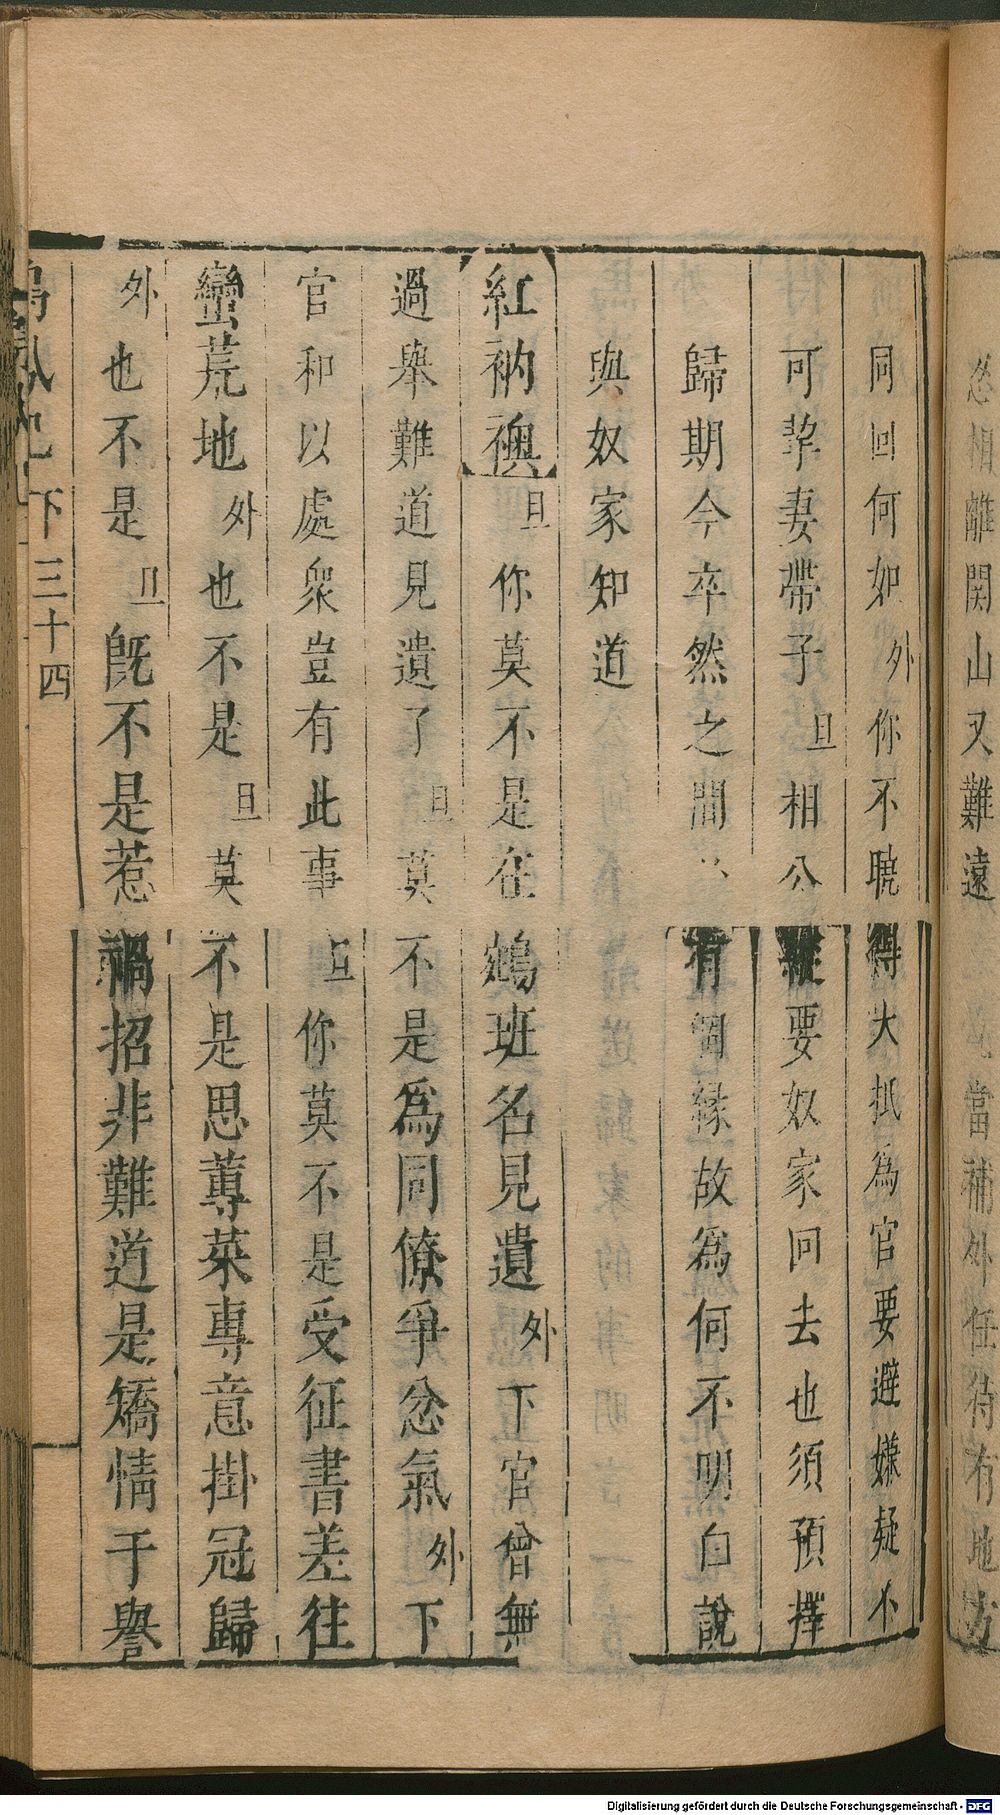 同回何如外你不曉得大抵為官要避嫌疑不
可挈妻帶子旦相公縱要奴家回去也須預擇
歸期今卒然之間必有個緣故為何不明白說
與奴家知道
紅衲襖旦你莫不是在鵷班名見遺外下官曾無
過舉難道見遺了旦莫不是為同僚爭忿氣外下
官和以處衆豈有此事旦你莫不是受征書差往
蠻荒地外也不是旦莫不是思蓴菜專意掛冠歸
外也不是旦旣不是惹禍招非難道是矯情于譽
下三十四
相離関山又難遠 當補外任待有地方
Digitalisierung gefördert durch die Deutsche Forschungsgemeinschaft - DFG